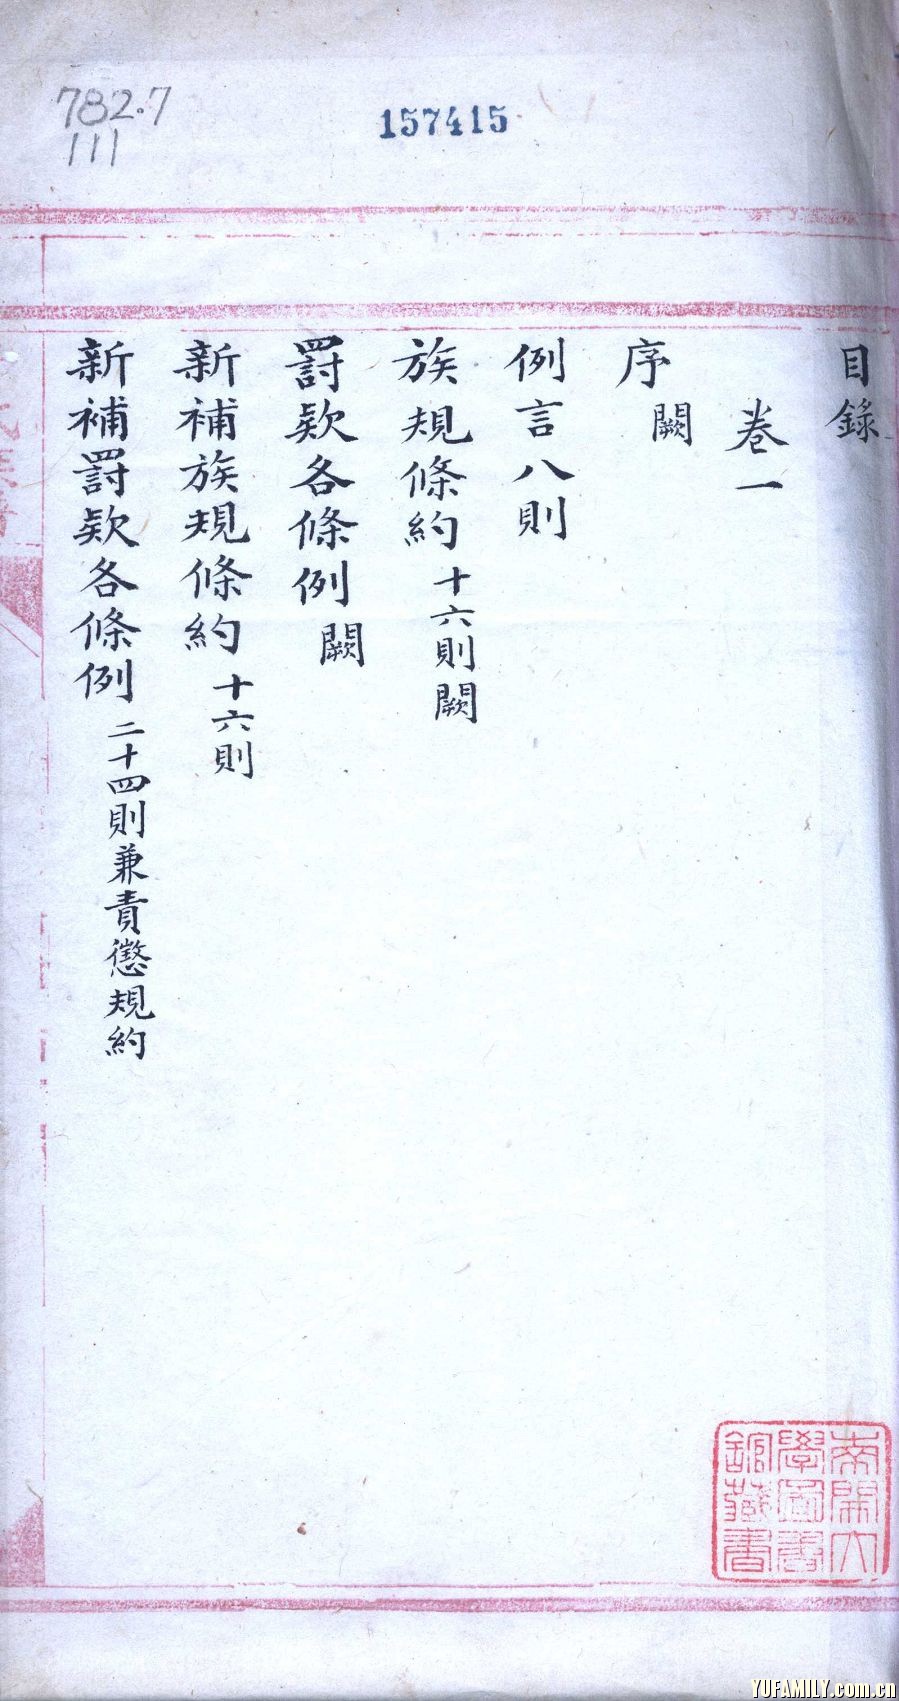 782.7
111
157415
目錄
卷一
序 闕
例言八則
族規條約 十六則闕
罸欵各條例 闕
新補族規條約 十六則
新補罸欵各條例 二十四則兼責懲規約
南開大
學圖書
館藏書
YUFAMILY.com.cn